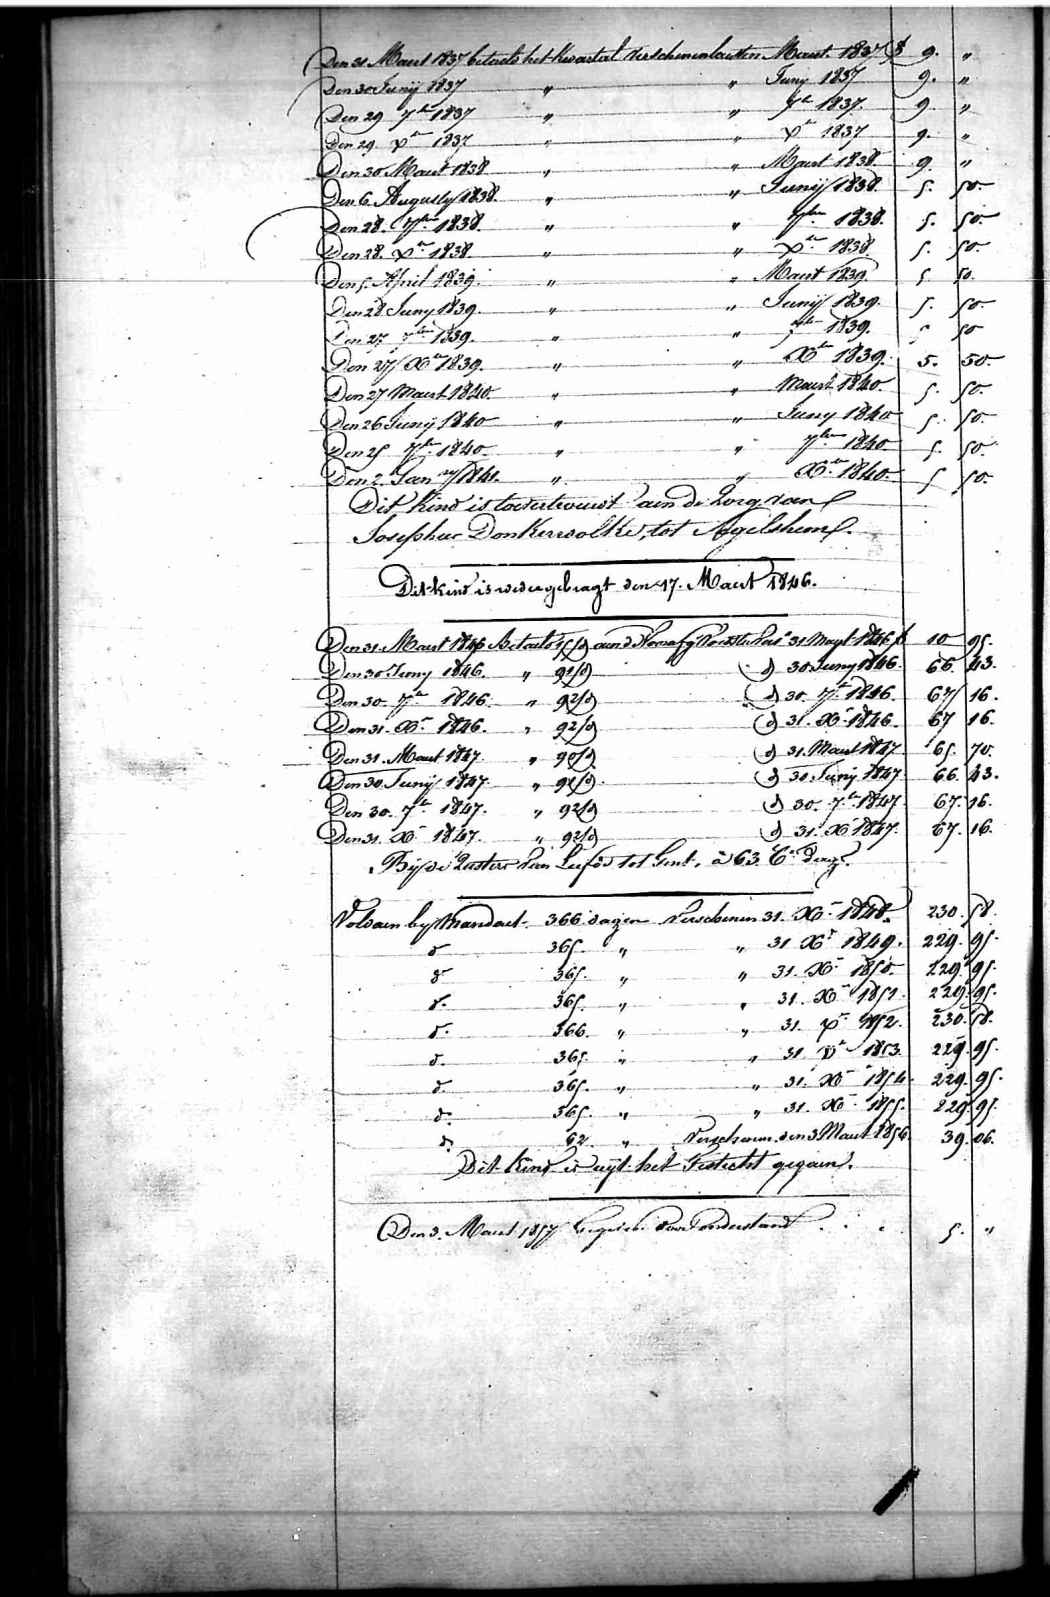 Den 31 Maert 1837 betaelt het kwartael verschenen lactten Maert 1837 f 9. "
Den 30 Junij 1837 " " Juny 1837 9. "
Den 29 7re 1837 " " 7re 1837. 9. "
Den 29 Xre 1837 " " Xre 1837 9. "
Den 30 Maert 1838 " " Maert 1838. 9. "
Den 6. Augusty 1838. " " Junij 1838. 5. 50.
Den 28. 7bre 1838. " " 7bre 1838. 5. 50.
Den 28. Xre 1838. " " Xre 1838 5. 50.
Den 5. April 1839. " " Maert 1839. 5. 50.
Den 28 Juny 1839. " " Junij 1839. 5. 50.
Den 27 7bre 1839. " " 7bre 1839. 5 50
Den 27 Xre 1839. " " Xre 1839. 5. 50.
Den 27 Maert 1840. " " Maert 1840. 5. 50.
Den 26 Junij 1840 " " Juny 1840 5. 50.
Den 25 7bre 1840. " " 7bre 1840. 5. 50.
Den 2. Janry 1841. " " Xre 1840. 5 50.
Dit kind is toevertrouwt aen de zorg van
Josephus Donkerwolke, tot Agelshem.
Dit kind is wedergebragt den 17. Maert 1846.
Den 31. Maert 1846 Betaelt 15/d 31 Maert 1846 f 10 95.
Den 30 Juny 1846. " 91/d d 30 Juny 1846. 66. 43.
Den 30. 7re 1846. " 92/d d 30. 7re 1846. 67 16.
Den 31. Xre 1846. " 92/d d 31. Xre 1846. 67 16.
Den 31. Maert 1847. " 90/d d 31. Maert 1847 65. 70.
Den 30. Junij 1847. " 91/d. d 30. Junij 1847 66. 43.
Den 30. 7re 1847. " 92/d d 30. 7re 1847 67. 16.
Den 31. Xre 1847. " 92/d d 31. Xre 1847. 67. 16.
Bij de Zusters van Liefde tot Gent, à 63. Cs daegs.
Voldaen by Mandaet 366 dagen verschenen 31. Xre 1848. 230. 58.
d 365. " " 31 Xre 1849. 229. 95.
d 365. " " 31. Xre 1850. 229. 95.
d. 365. " " 31. Xre 1851. 229. 95.
d. 366. " " 31. Xre 1852. 230. 58.
d. 365. " " 31. Xre 1853. 229. 95.
d. 365. " " 31. Xre 1854. 229. 95.
d. 365. " " 31. Xre 1855. 229. 95.
d. 62 " Verschenen den 3 Maert 1856 39. 06.
Dit kind is uijt het Gesticht gegaen.
Den 3. Maert 1857 voor onderstand . . . 5. "